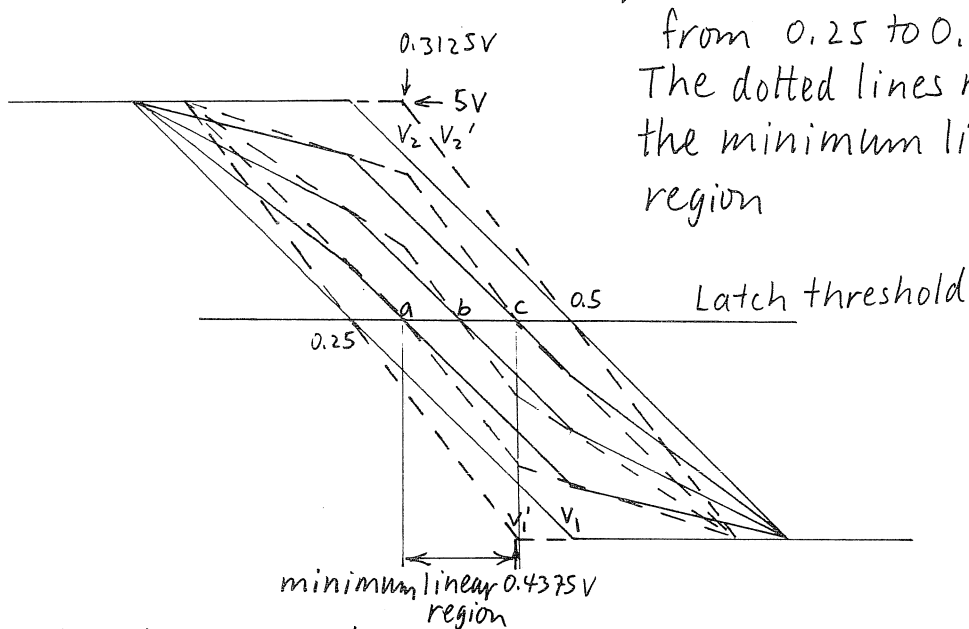 from 0.25 to 0.
The dotted lines
the minimum
region
0.3125V
5V
V2 V2'
Latch threshold
0.25
a
b
c
0.5
V1' V1
minimum linear 0.4375V
region